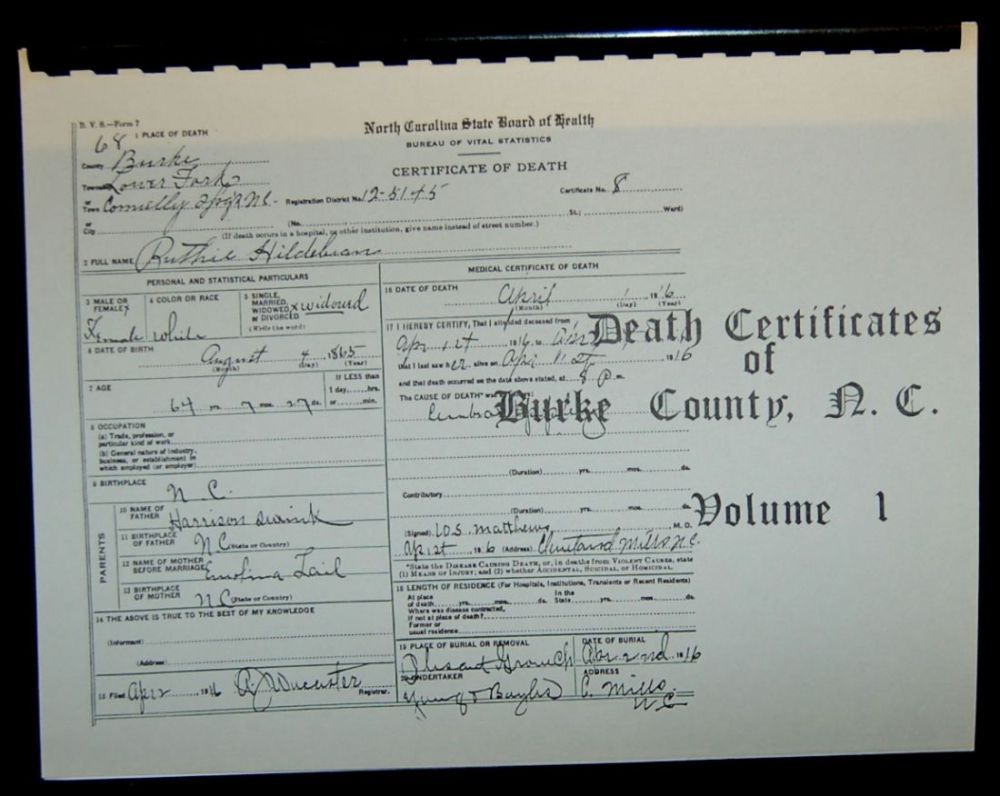 B. V. S.—Form 7
North Carolina State Board of Health
BUREAU OF VITAL STATISTICS
CERTIFICATE OF DEATH
68 1 PLACE OF DEATH
County Burke
Township Lower Fork
or
Town Connelly Spgs N.C. Registration District No. 12-5145 Certificate No. 8
or
City (No. St.; Ward)
(If death occurs in a hospital, or other institution, give name instead of street number.)
2 FULL NAME Ruthie Hildebran
PERSONAL AND STATISTICAL PARTICULARS
3 MALE OR FEMALE? Female
4 COLOR OR RACE White
5 SINGLE, MARRIED, WIDOWED OR DIVORCED widowed
(Write the word)
6 DATE OF BIRTH August 4, 1865
(Month) (Day) (Year)
7 AGE
64 yrs. 7 mos. 27 ds.
If LESS than
1 day, hrs.
or min.
8 OCCUPATION
(a) Trade, profession, or
particular kind of work
(b) General nature of industry,
business, or establishment in
which employed (or employer)
9 BIRTHPLACE
N. C.
PARENTS
10 NAME OF FATHER Harrison
11 BIRTHPLACE OF FATHER N.C. (State or Country)
12 NAME OF MOTHER BEFORE MARRIAGE Emolina Lail
13 BIRTHPLACE OF MOTHER N.C. (State or Country)
14 THE ABOVE IS TRUE TO THE BEST OF MY KNOWLEDGE
(Informant)
(Address)
15 Filed Apr 2 1916 Registrar.
MEDICAL CERTIFICATE OF DEATH
16 DATE OF DEATH
April 1, 1916
(Month) (Day) (Year)
17 I HEREBY CERTIFY, That I attended deceased from
Apr 1st 1916, to
that I last saw her alive on Apr 1st 1916
and that death occurred on the date above stated, at 8 P m.
The CAUSE OF DEATH* was
(Duration) yrs. mos. ds.
Contributory
(Duration) yrs. mos. ds.
(Signed) W.S. Matthews, M. D.
Ap 1st, 1916 (Address) Cleveland Mills N.C.
*State the DISEASE CAUSING DEATH, or, in deaths from VIOLENT CAUSES, state
(1) MEANS OF INJURY; and (2) whether ACCIDENTAL, SUICIDAL, or HOMICIDAL.
18 LENGTH OF RESIDENCE (For Hospitals, Institutions, Transients or Recent Residents)
At place of death yrs. mos. ds. In the State yrs. mos. ds.
Where was disease contracted,
If not at place of death?
Former or
usual residence
19 PLACE OF BURIAL OR REMOVAL
Pleasant Grove Ch
DATE OF BURIAL
Apr 2nd 1916
20 UNDERTAKER
Young &
ADDRESS
C. Mills
N.C.
Death Certificates
of
Burke County, N. C.
Volume 1